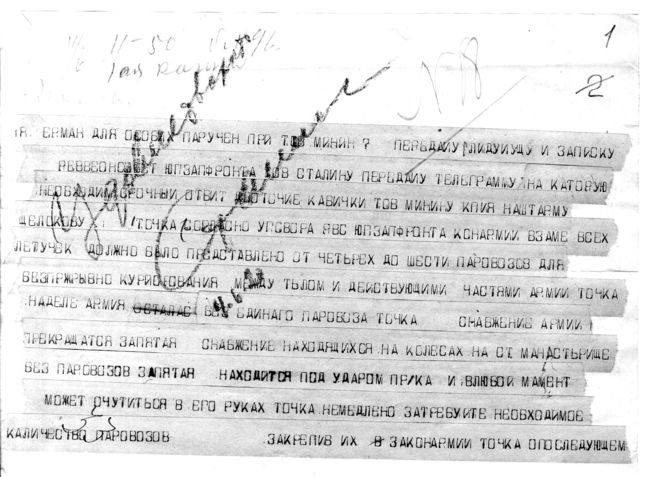 11-50
1
2
N 18
Удовлетворить
ЕРМАН ДЛЯ ОСОБЫХ ПАРУЧЕН ПРИ ТОВ МИНИН ? ПЕРЕДАЙУ И ЗАПИСКУ
РЕВВОЕНСОВЕТ ЮПЗАПФРОНТА ТОВ СТАЛИНУ ПЕРЕДАЙУ ТЕЛЕГРАММУ НА КАТОРУЮ
НЕОБХОДИМ СРОЧНЫЙ ОТВИТ КАВИЧКИ ТОВ МИНИНУ КПИЯ НАШТАРМУ
ЩЕЛОКОВУ ТОЧКА СОГЛАСНО УГОВОРА РВС ЮПЗАПФРОНТА КОНАРМИИ ВЗАМЕ ВСЕХ
ЛЕТУЧЕК ДОЛЖНО БЫЛО ПРЕДСТАВЛЕНО ОТ ЧЕТЫРЕХ ДО ШЕСТИ ПАРОВОЗОВ ДЛЯ
БЕЗПРЖРЫВНО КУРИСРОВАНИЯ МЕЖДУ ТЫЛОМ И ДЕЙСТВУЮЩИМИ ЧАСТЯМИ АРМИИ ТОЧКА
НАДЕЛЕ АРМИЯ ОСТАЛАС БЕЗ ЕДИНАГО ПАРОВОЗА ТОЧКА СНАБЖЕНИЕ АРМИИ
ПРЕКРАЩАТСЯ ЗАПЯТАЯ СНАБЖЕНИЕ НАХОДЯЩИХСЯ НА КОЛЕСАХ НА СТ МАНАСТЫРИЩЕ
БЕЗ ПАРОВОЗОВ ЗАПЯТАЯ НАХОДИТСЯ ПОД УДАРОМ ПР/КА И ВЛЮБОЙ МАМЕНТ
МОЖЕТ ОЧУТИТЬСЯ В ЕГО РУКАХ ТОЧКА НЕМЕДЛЕНО ЗАТРЕБУЙТЕ НЕОБХОДИМОЕ
КАЛИЧЕСТВО ПАРОВОЗОВ ЗАКРЕПИВ ИХ В ЗАКОНАРМИИ ТОЧКА ОПОСЛЕДУЮЩЕМ